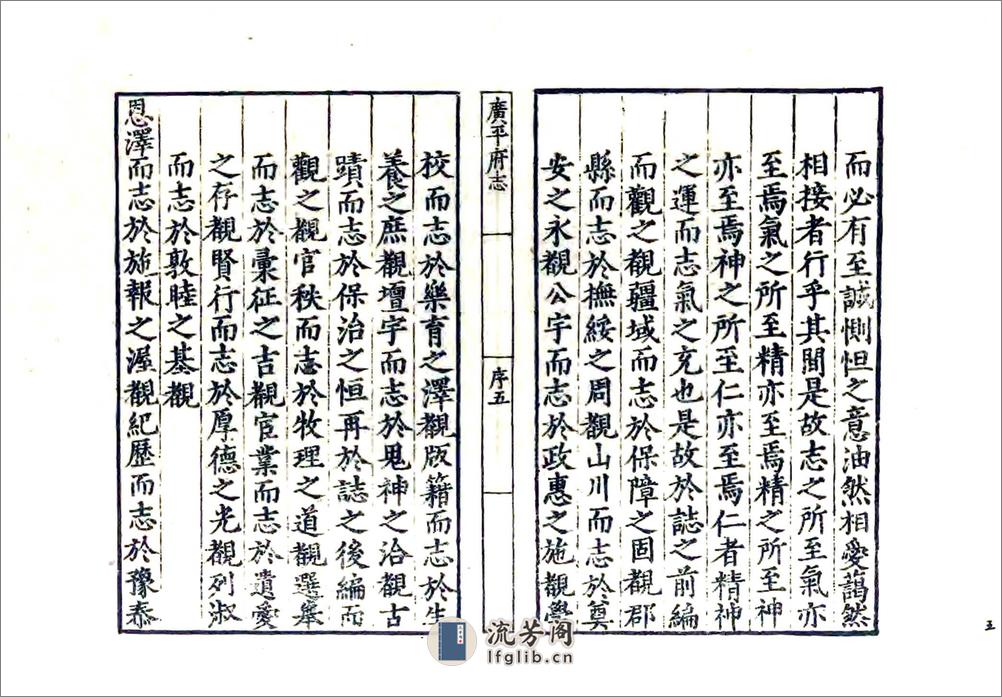 而必有至誠惻怛之意油然相愛藹然
相接者行乎其間是故志之所至氣亦
至焉氣之所至精亦至焉精之所至神
亦至焉神之所至仁亦至焉仁者精神
之運而志氣之充也是故於誌之前編
而觀之觀疆域而志於保障之固觀郡
縣而志於撫綏之周觀山川而志於奠
安之永觀公宇而志於政惠之施觀學
廣平府志
序五
校而志於樂育之澤觀版籍而志於生
養之庶觀壇宇而志於鬼神之治觀古
蹟而志於保治之恒再於誌之後編而
觀之觀官秩而志於牧理之道觀選舉
而志於彙征之吉觀宦業而志於遺愛
之存觀賢行而志於厚德之光觀列淑
而志於敦睦之基觀
恩澤而志於施報之渥觀紀歷而志於豫泰
五
流芳阁
lfglib.cn